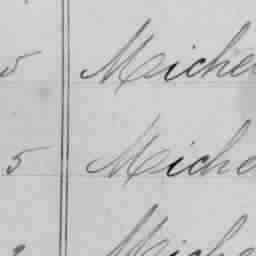 5 Miche
5 Miche
Miche